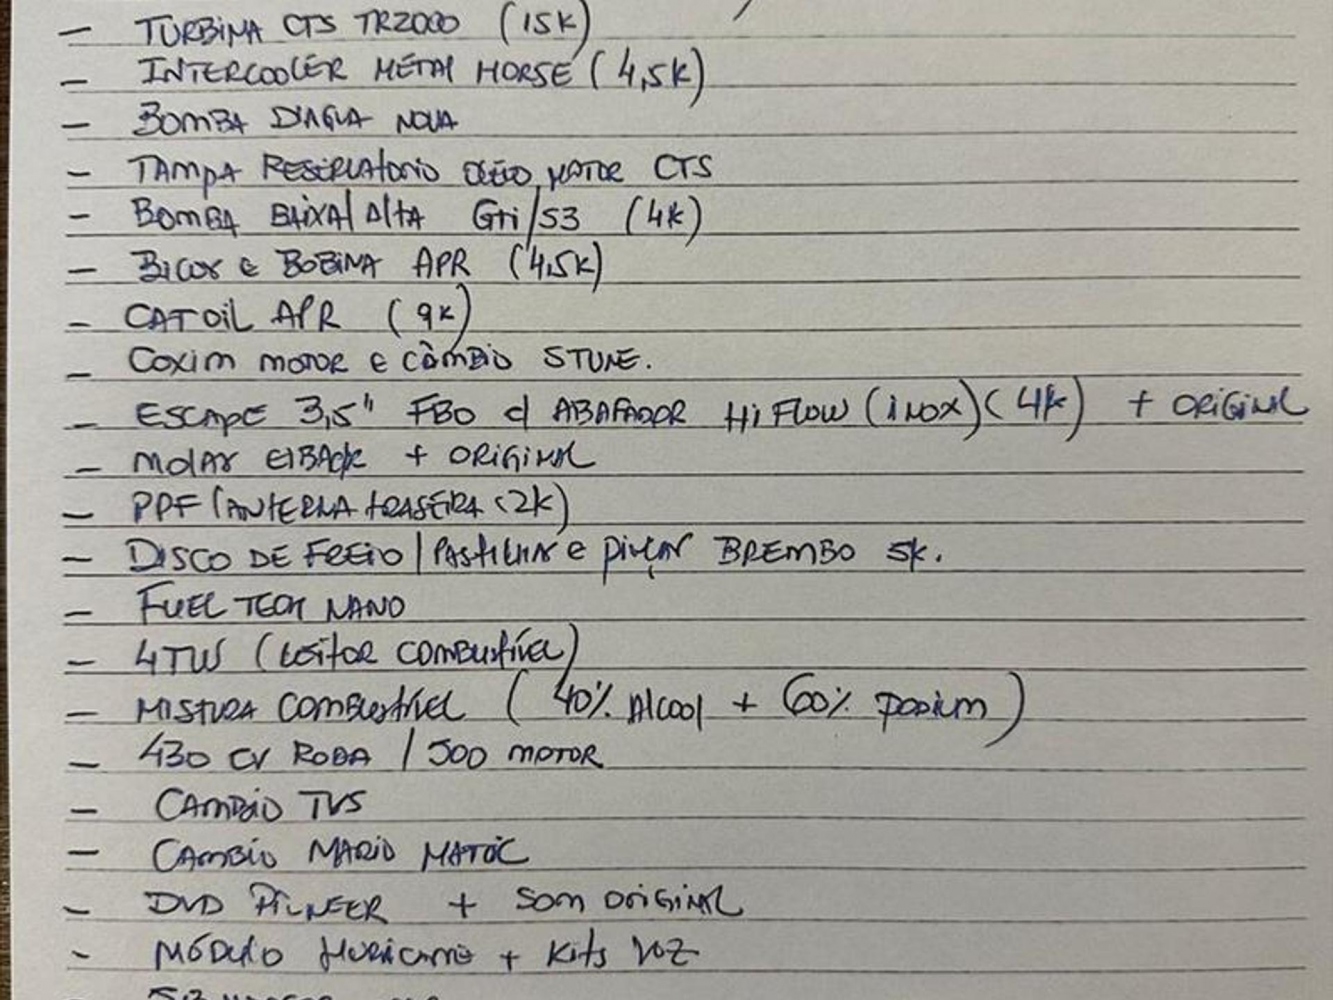 - TURBINA CTS TR2000 (15K)
- INTERCOOLER METAL HORSE (4,5K)
- BOMBA D'AGUA NOVA
- TAMPA RESERVATORIO OLEO MOTOR CTS
- BOMBA BAIXA/ALTA GTi/S3 (4K)
- BICOS e BOBINA APR (4,5K)
- CAT OIL APR (9K)
- COXIM MOTOR E CÂMBIO STUNE.
- ESCAPE 3,5" FBO c/ ABAFADOR Hi FLOW (iNOX) (4K) + ORIGINAL
- MOLAS EIBACK + ORIGINAL
- PPF LANTERNA TRASEIRA (2K)
- DISCO DE FREIO / PASTILHAS e PINÇAS BREMBO 5K.
- FUEL TECH NANO
- 4TW (LEITOR COMBUSTÍVEL)
- MISTURA COMBUSTÍVEL (40% Alcool + 60% PODIUM)
- 430 CV RODA / 500 MOTOR
- CAMBIO TVS
- CAMBIO MARIO MATOC
- DVD PIONEER + SOM ORIGINAL
- MÓDULO HURICANE + Kits VOZ